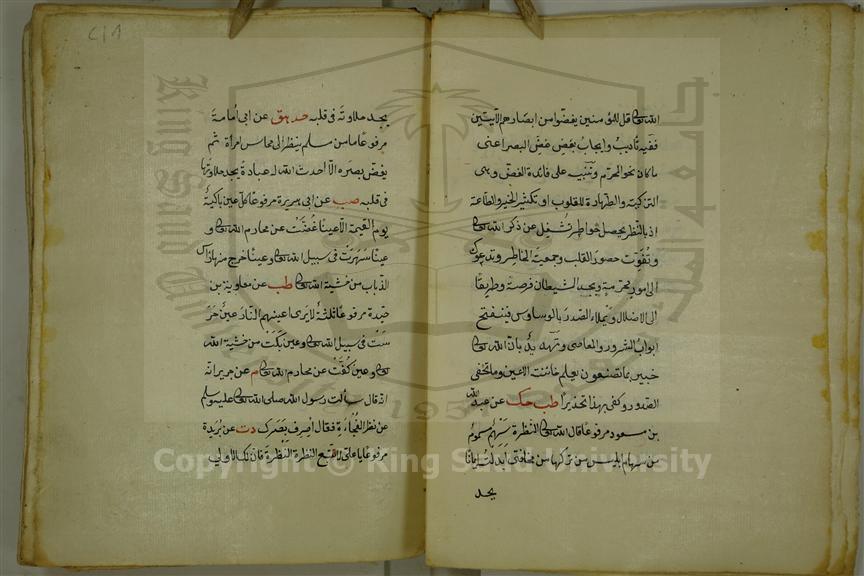 الله تعالى قل للمؤمنين يغضوا من ابصارهم الآيتين
ففيه تأديب وايجاب بغض غض البصر اعنى
ما كان نحو المحرم وتنبيه على فائدة الغض وهى
التزكية والطهارة للقلوب او تكثير الخير والطاعة
اذ بالنظر يحصل خواطر تشغل عن ذكر الله تعالى
وتفوت حضور القلب وجمعية الخاطر وتدعوك
الى امور محرمة ويجد الشيطان فرصة وطريقا
الى الاضلال ويملأ الصدر بالوساوس فينفتح
ابواب الشرور والمعاصى وتهديد بان الله تعالى
خبير بما تصنعون يعلم خائنة الاعين وما تخفى
الصدور وكفى بهذا تحذيرا طب حك عن عبد الله
بن مسعود مرفوعا قال الله تعالى النظرة سهم مسموم
من سهام ابليس من تركها من مخافتى ابدلته ايمانا
يجد
يجد حلاوته فى قلبه حد هق عن ابى امامة
مرفوعا ما من مسلم ينظر الى محاسن امرأة ثم
يغض بصره الا احدث الله له عبادة يجد حلاوتها
فى قلبه صب عن ابى هريرة مرفوعا كل عين باكية
يوم القيمة الا عينا غضت عن محارم الله تعالى و
عينا سهرت فى سبيل الله تعالى وعينا خرج منها رأس
الذباب من خشية الله تعالى طب عن معاوية بن
حيدة مرفوعا ثلثة لا يرى اعينهم النار عين حر
ست فى سبيل الله تعالى وعين بكت من خشية الله
تعالى وعين كفت عن محارم الله تعالى م عن جرير انه
اذ قال سألت رسول الله صلى الله تعالى عليه وسلم
عن نظر الفجاءة فقال اصرف بصرك دت عن بريدة
مرفوعا يا على لا تتبع النظرة النظرة فان لك الاولى
Copyright © King Saud University
King Saud University
جامعة الملك سعود
1957